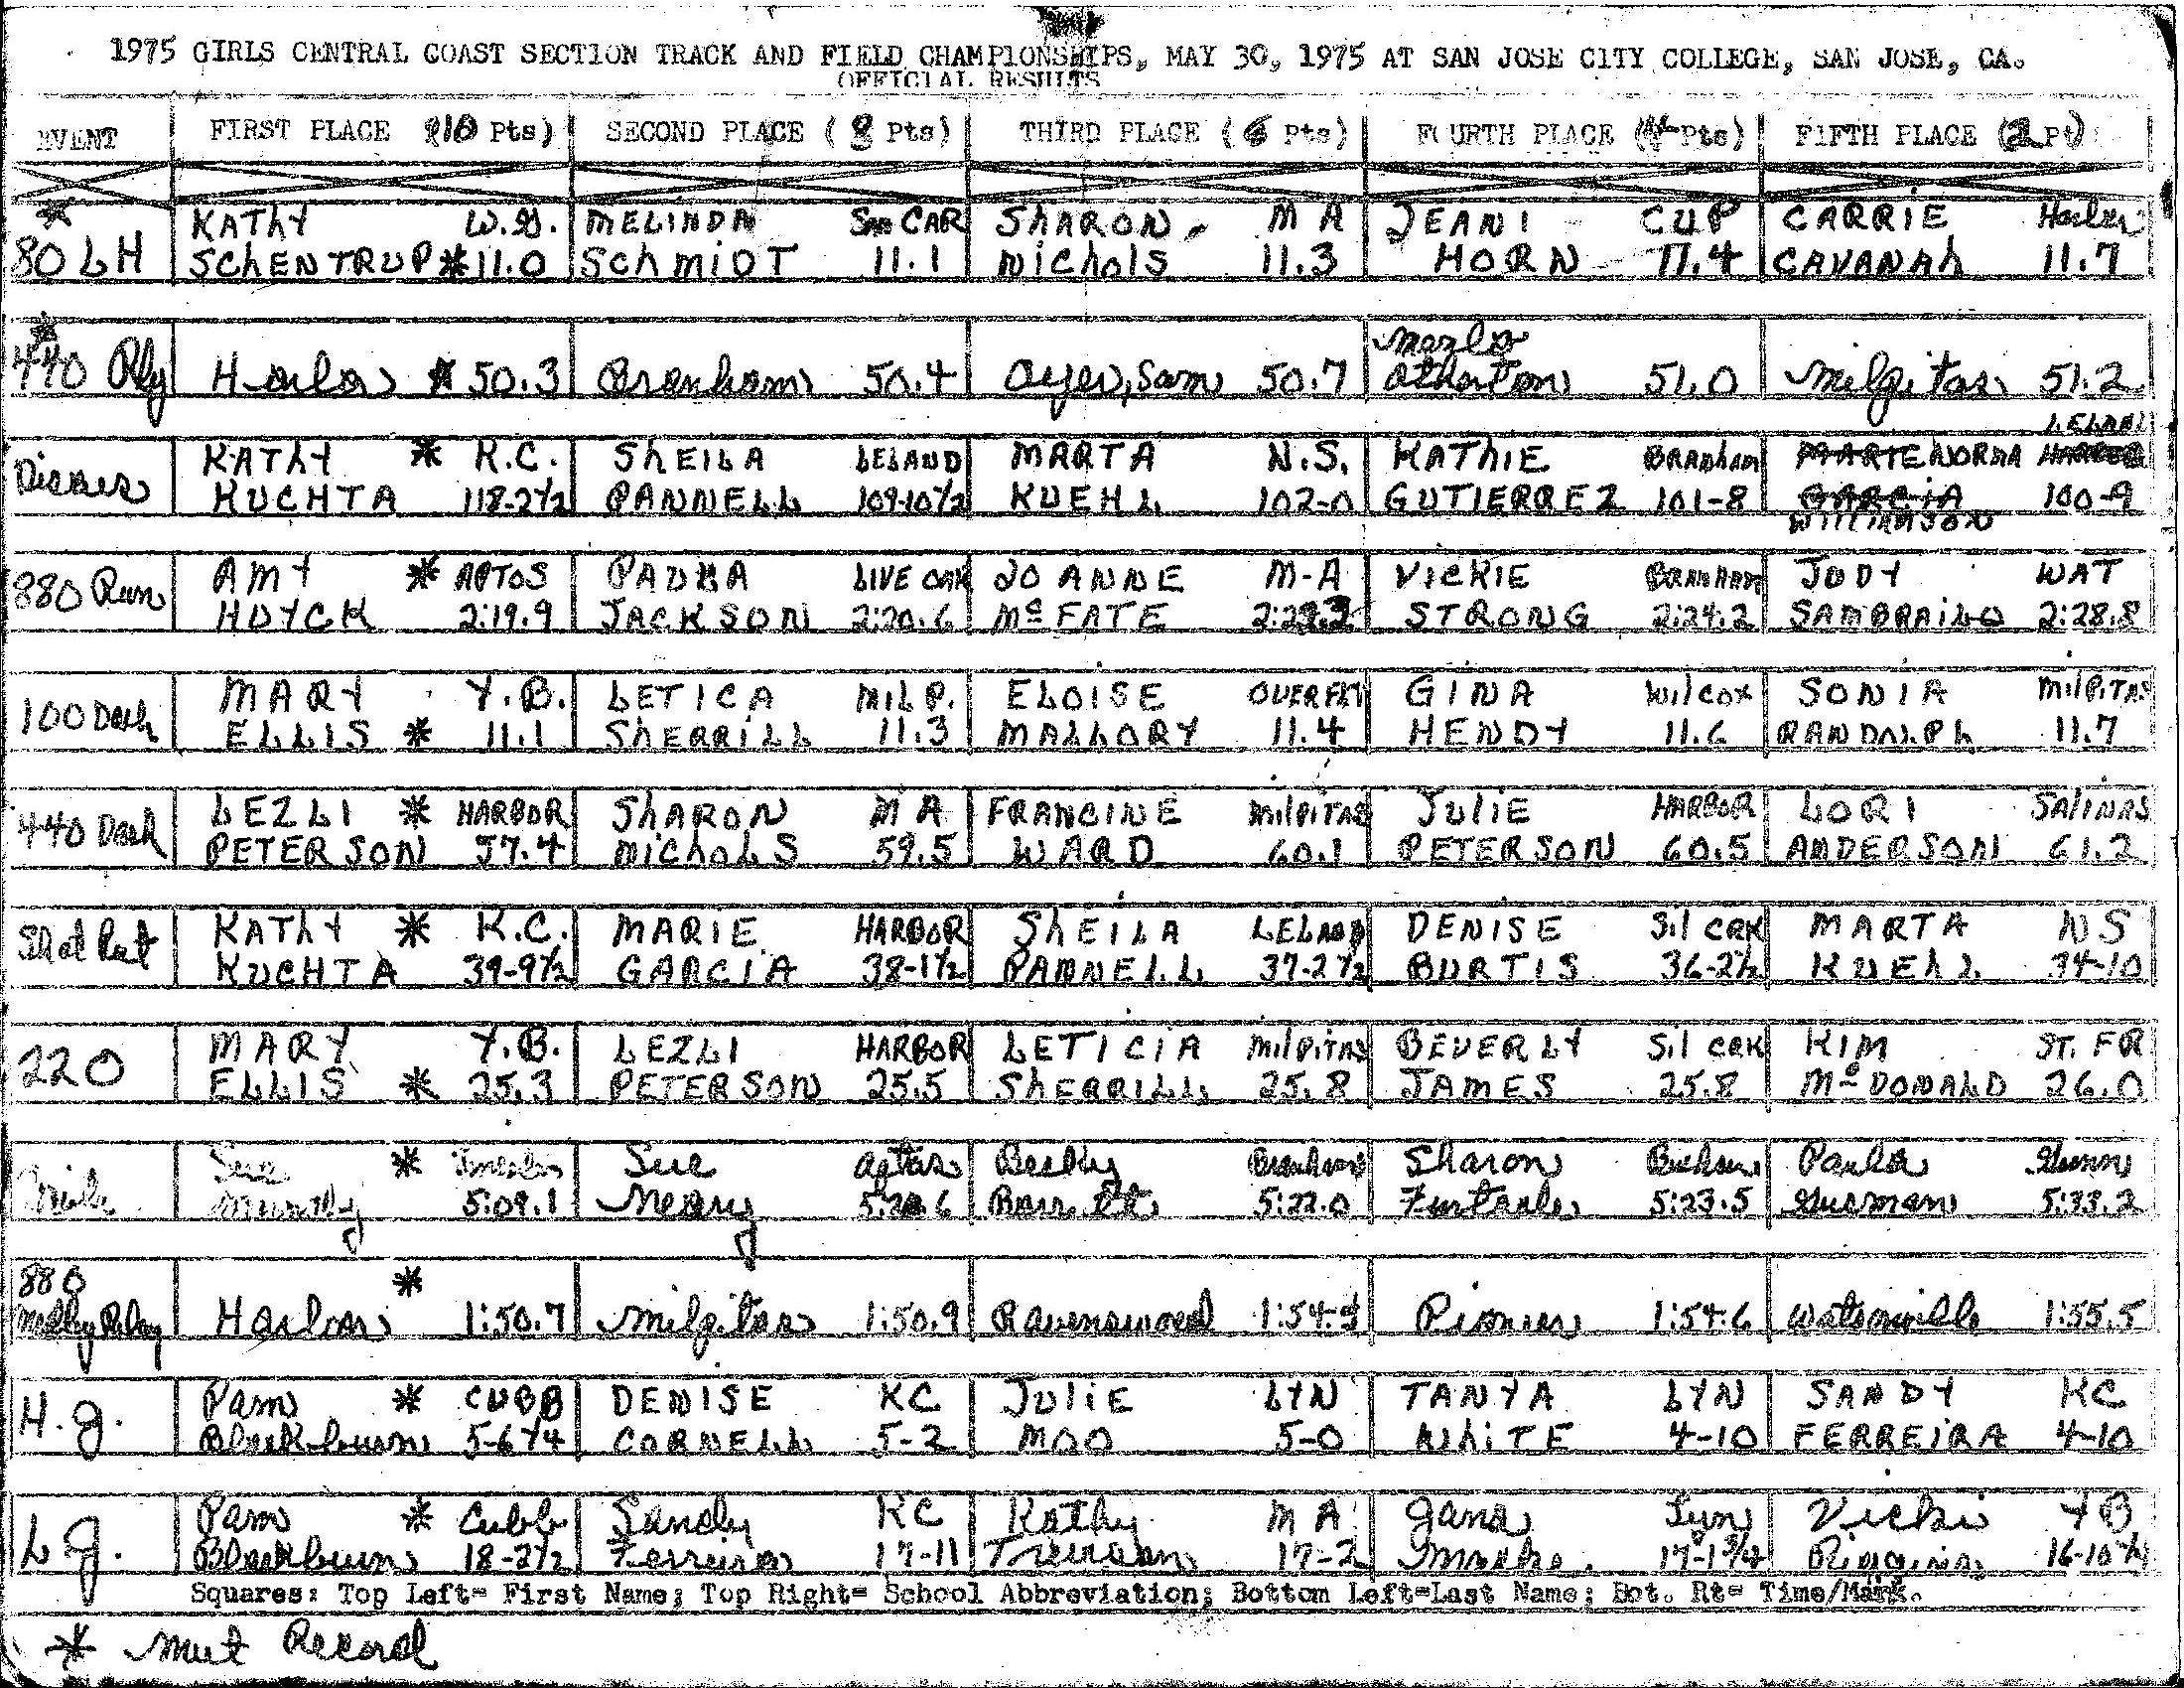 1975 GIRLS CENTRAL COAST SECTION TRACK AND FIELD CHAMPIONSHIPS, MAY 30, 1975 AT SAN JOSE CITY COLLEGE, SAN JOSE, CA.
OFFICIAL RESULTS
EVENT FIRST PLACE (10 Pts) SECOND PLACE (8 Pts) THIRD PLACE (6 Pts) FOURTH PLACE (4 Pts) FIFTH PLACE (2 Pt)
* KATHY W.G. MELINDA San CAR SHARON M A JEANI CUP CARRIE Harbor
80 LH SCHENTRUP *11.0 SCHMIDT 11.1 NICHOLS 11.3 HORN 11.4 CAVANAH 11.7
* Menlo
440 Rly Harbor * 50.3 Branham 50.4 Oyer, Sam 50.7 Atherton 51.0 Milpitas 51.2
LELAND
KATHY * K.C. SHEILA LELAND MARTA N.S. KATHIE BRANHAM MARIE NORMA HARBOR
Discus KUCHTA 118-2½ PANNELL 109-10½ KUEHL 102-0 GUTIERREZ 101-8 GARCIA 100-9
WILLIAMSON
AMY * APTOS LIVE OAK JO ANNE M-A VICKIE BRANHAM JODY WAT
880 Run HUYCK 2:19.9 JACKSON 2:20.6 McFATE STRONG 2:24.2 SAMBRAILO 2:28.8
MARY Y.B. LETICA MILP. ELOISE OVERFLT GINA Wilcox SONIA MilPiTAS
100 Dash ELLIS * 11.1 SHERRILL 11.3 MALLORY 11.4 HENDY 11.6 RANDOLPH 11.7
LEZLI * HARBOR SHARON M A FRANCINE MilPiTAS JULIE HARBOR LORI SALINAS
440 Dash PETERSON 57.4 NICHOLS 59.5 WARD 60.1 PETERSON 60.5 ANDERSON 61.2
KATHY * K.C. MARIE HARBOR SHEILA LELAND DENISE Sil CRK MARTA NS
Shot Put KUCHTA 39-9½ GARCIA 38-1½ PANNELL 37-2½ BURTIS 36-2½ KUEHL 34-10
MARY Y.B. LEZLI HARBOR LETICIA MilPiTAS BEVERLY Sil CRK KIM ST. FR
220 ELLIS * 25.3 PETERSON 25.5 SHERRILL 25.8 JAMES 25.8 McDONALD 26.0
Sue * Sue Aptos Becky Branham Sharon Paula Gunn
Mile Munday 5:09.1 Neary Barrett 5:22.0 Furtado 5:23.5 Gusman 5:33.2
880 *
Medley Relay Harbor 1:50.7 Milpitas 1:50.9 Ravenswood Pioneer 1:54.6 Watsonville 1:55.5
Pam * CUBB DENISE KC JULIE LYN TANYA LYN SANDY KC
H.J. Blackburn 5-6¼ CORNELL 5-2 MOO 5-0 WHITE 4-10 FERREIRA 4-10
Pam * Cubb Sandy KC Kathy M A Jana Lyn Vicki YB
L J. Blackburn 18-2½ Ferreira 17-11 17-2 17-1¾ 16-10¼
Squares: Top Left= First Name; Top Right= School Abbreviation; Bottom Left=Last Name; Bot. Rt= Time/Mark.
* Meet Record